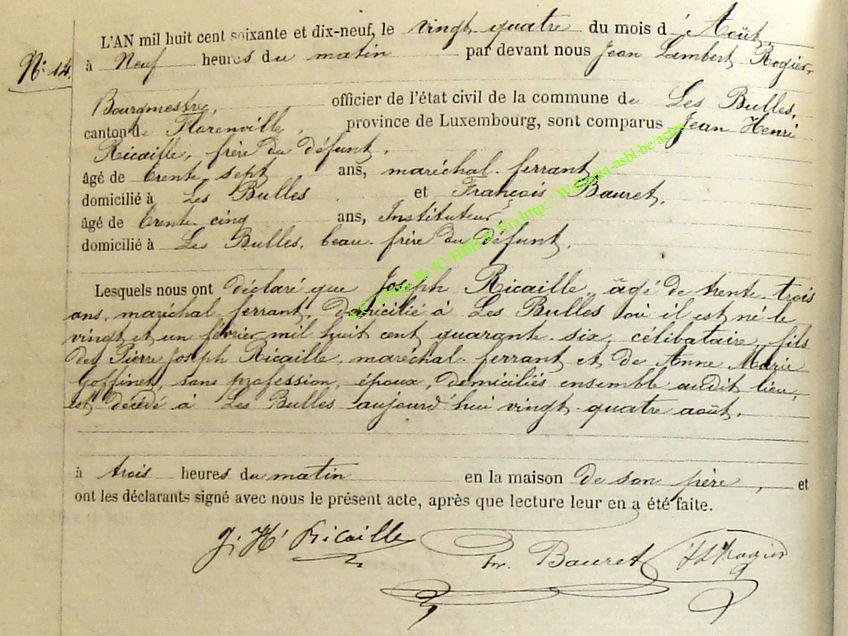 L'AN mil huit cent soixante et dix-neuf, le vingt quatre du mois d'Août
N° 14. à Neuf heures du matin par devant nous Jean Lambert Rogier,
Bourgmestre, officier de l'état civil de la commune de Les Bulles,
canton de Florenville, province de Luxembourg, sont comparus Jean Henri
Ricaille, frère du défunt,
âgé de trente sept ans, maréchal-ferrant
domicilié à Les Bulles et François Bauret,
âgé de trente cinq ans, Instituteur
domicilié à Les Bulles, beau-frère du défunt.
Lesquels nous ont déclaré que Joseph Ricaille, âgé de trente-trois
ans, maréchal-ferrant, domicilié à Les Bulles où il est né le
vingt et un février mil huit cent quarante-six, célibataire, fils
de Pierre Joseph Ricaille, maréchal-ferrant et de Anne Marie
Goffinet, sans profession, époux, domiciliés ensemble audit lieu,
est décédé à Les Bulles aujourd'hui vingt-quatre août.
à trois heures du matin en la maison de son père, et
ont les déclarants signé avec nous le présent acte, après que lecture leur en a été faite.
J. H. Ricaille Fr. Bauret JL Rogier